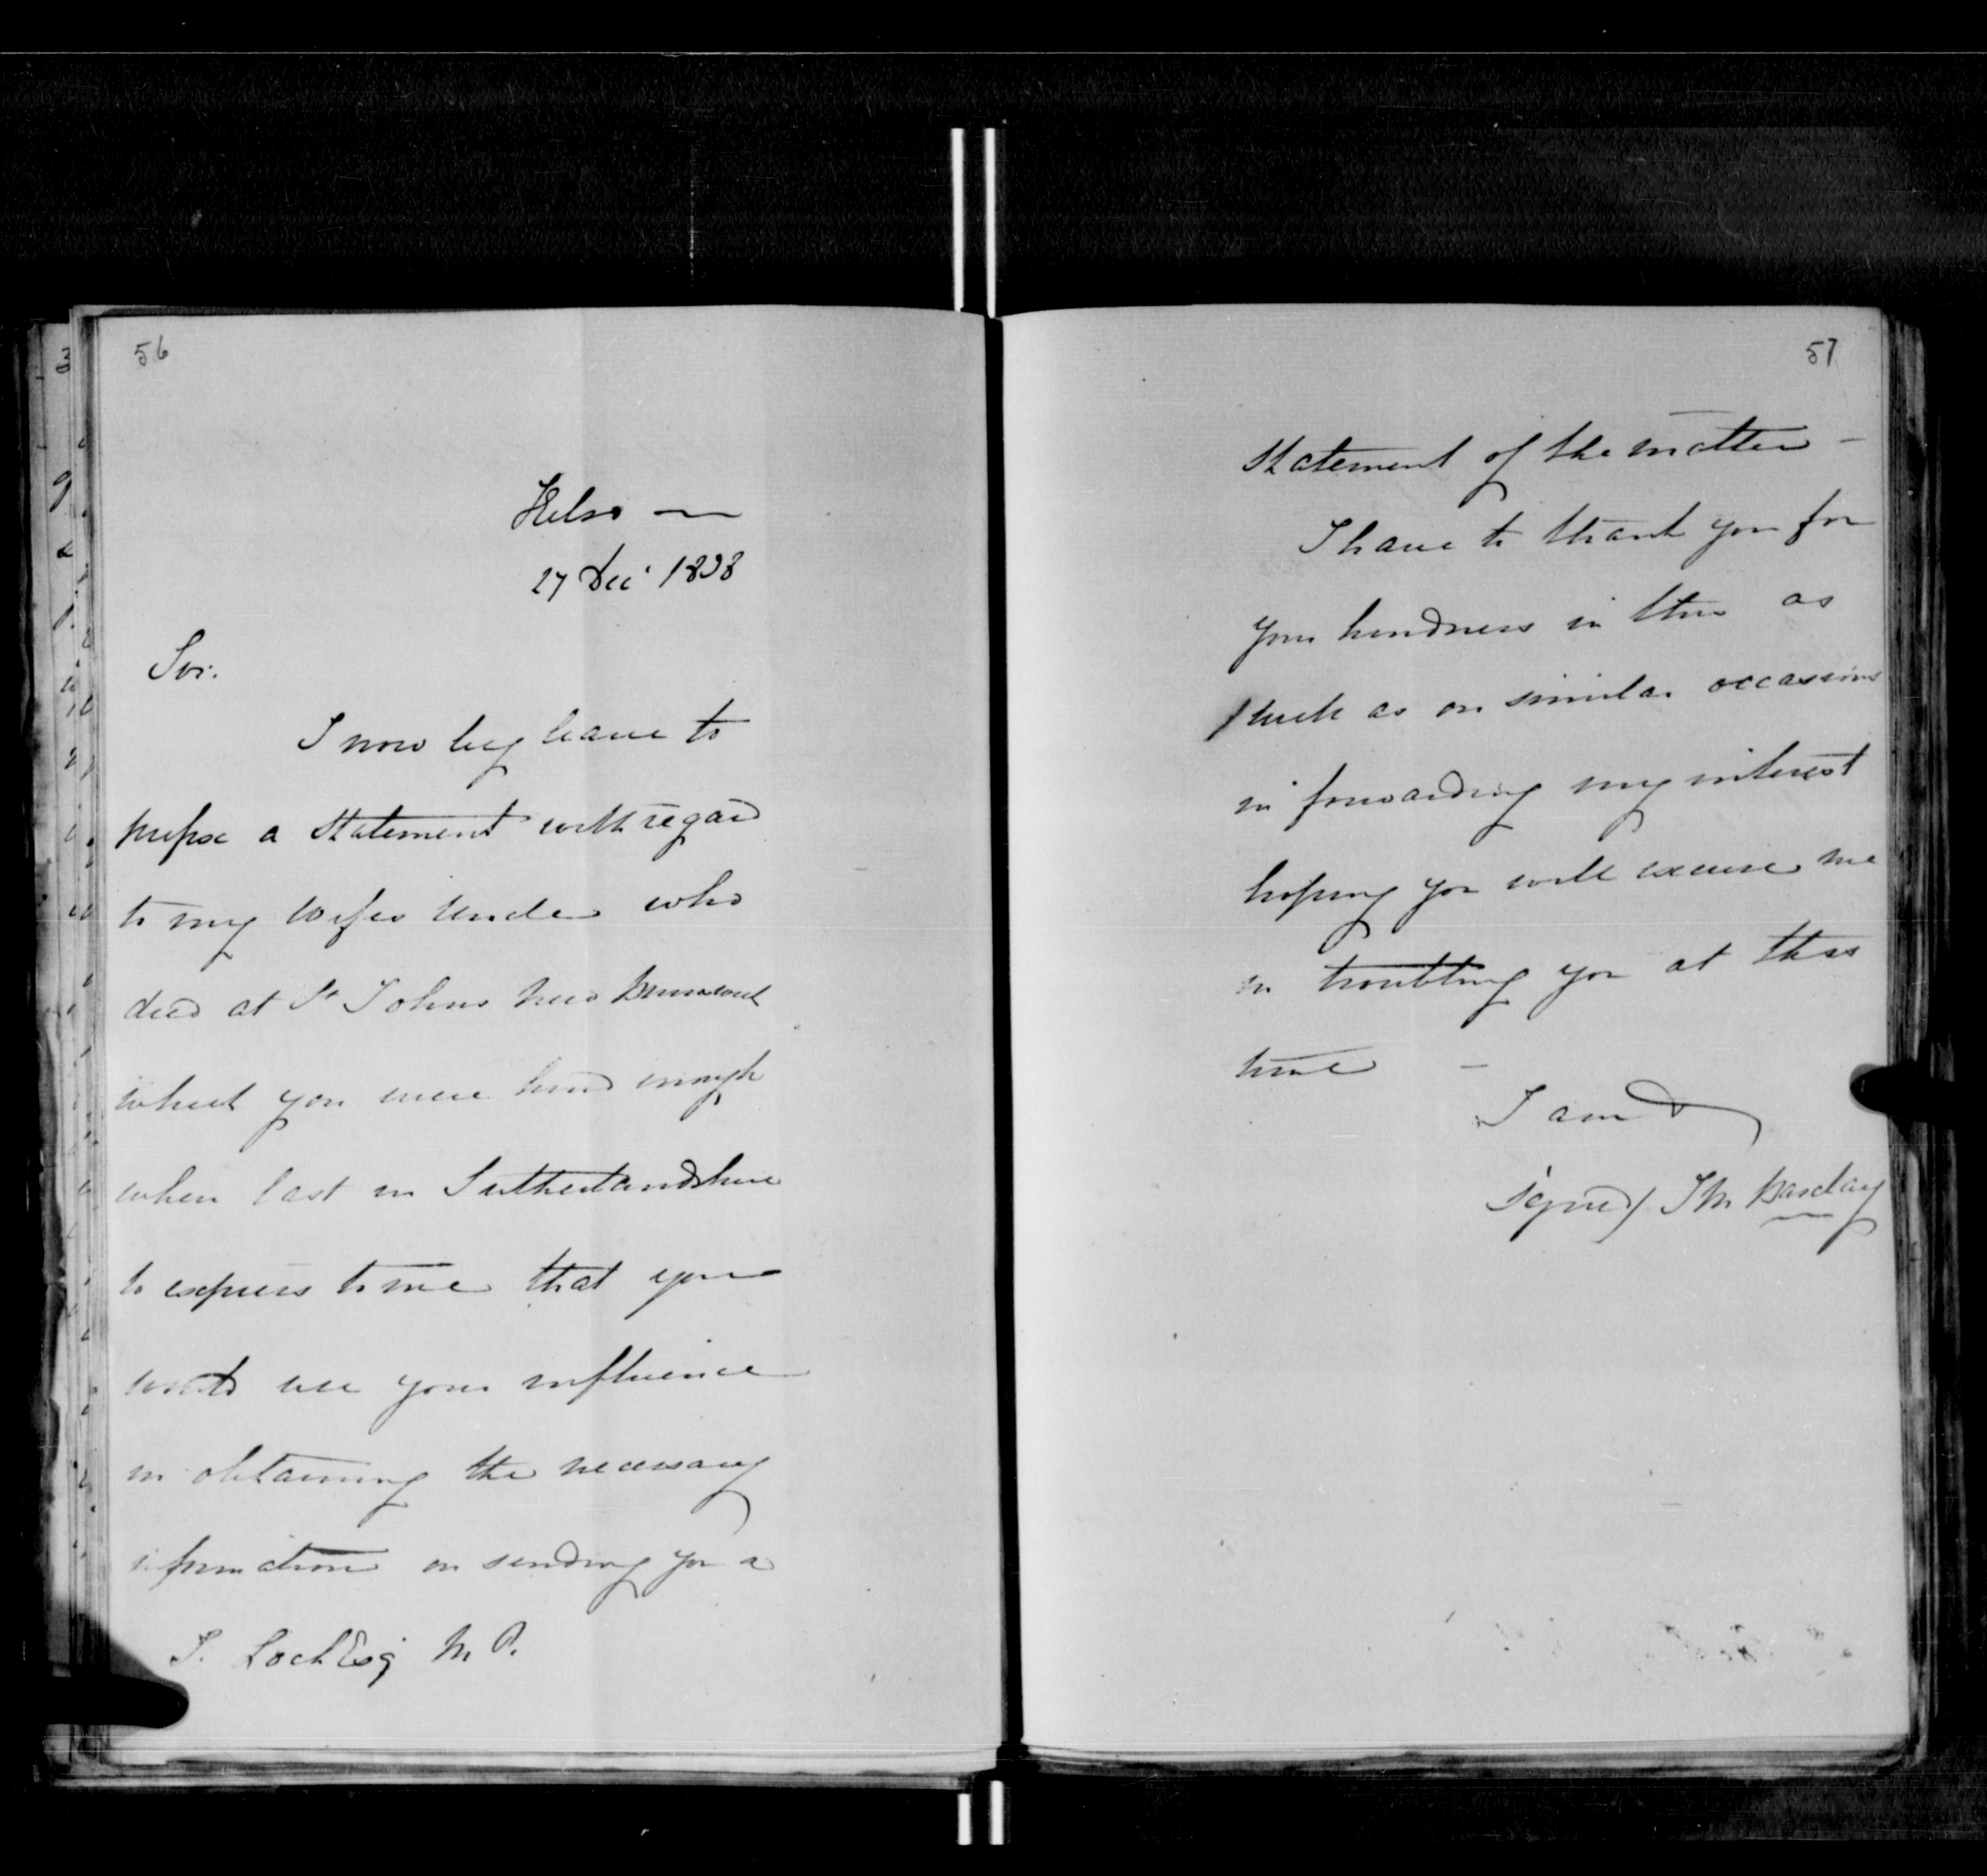 56
Kelso —
27 Dec 1838
Sir.
I now beg leave to
prefix a Statement with regard
to my Wifes Uncle who
died at St Johns New Brunswick
which you were kind enough
when last in Sutherlandshire
to express to me that you
would use your influence
in obtaining the necessary
information on sending you a
J. Loch Esq M. P.
57
Statement of the matter —
I have to thank you for
your kindness in this as
such as on similar occasions
in forwarding my interest
hoping you will excuse me
in troubling you at this
time —
I am
signed/ Barclay